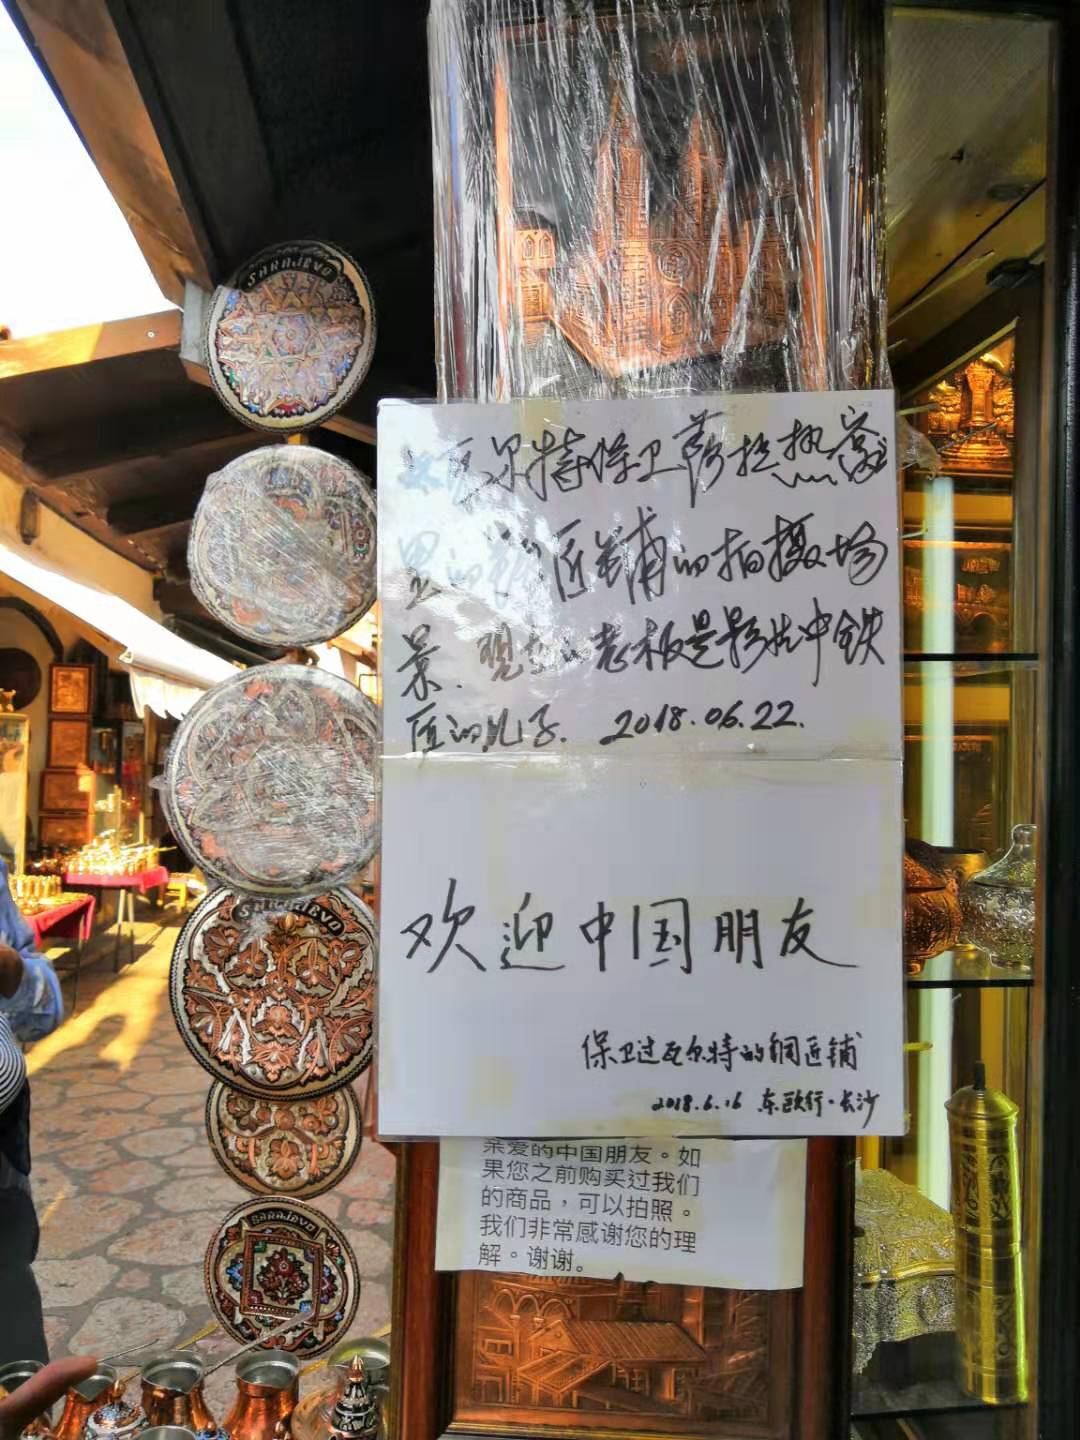 SARAJEVO
瓦尔特保卫萨拉热窝
里的铜匠铺的拍摄场
景.现在的老板是影片中铁
匠的儿子. 2018.06.22.
SARAJEVO
欢迎中国朋友
保卫过瓦尔特的铜匠铺
2018.6.16 东欧行·长沙
亲爱的中国朋友。如
果您之前购买过我们
的商品,可以拍照。
我们非常感谢您的理
解。谢谢。
SARAJEVO